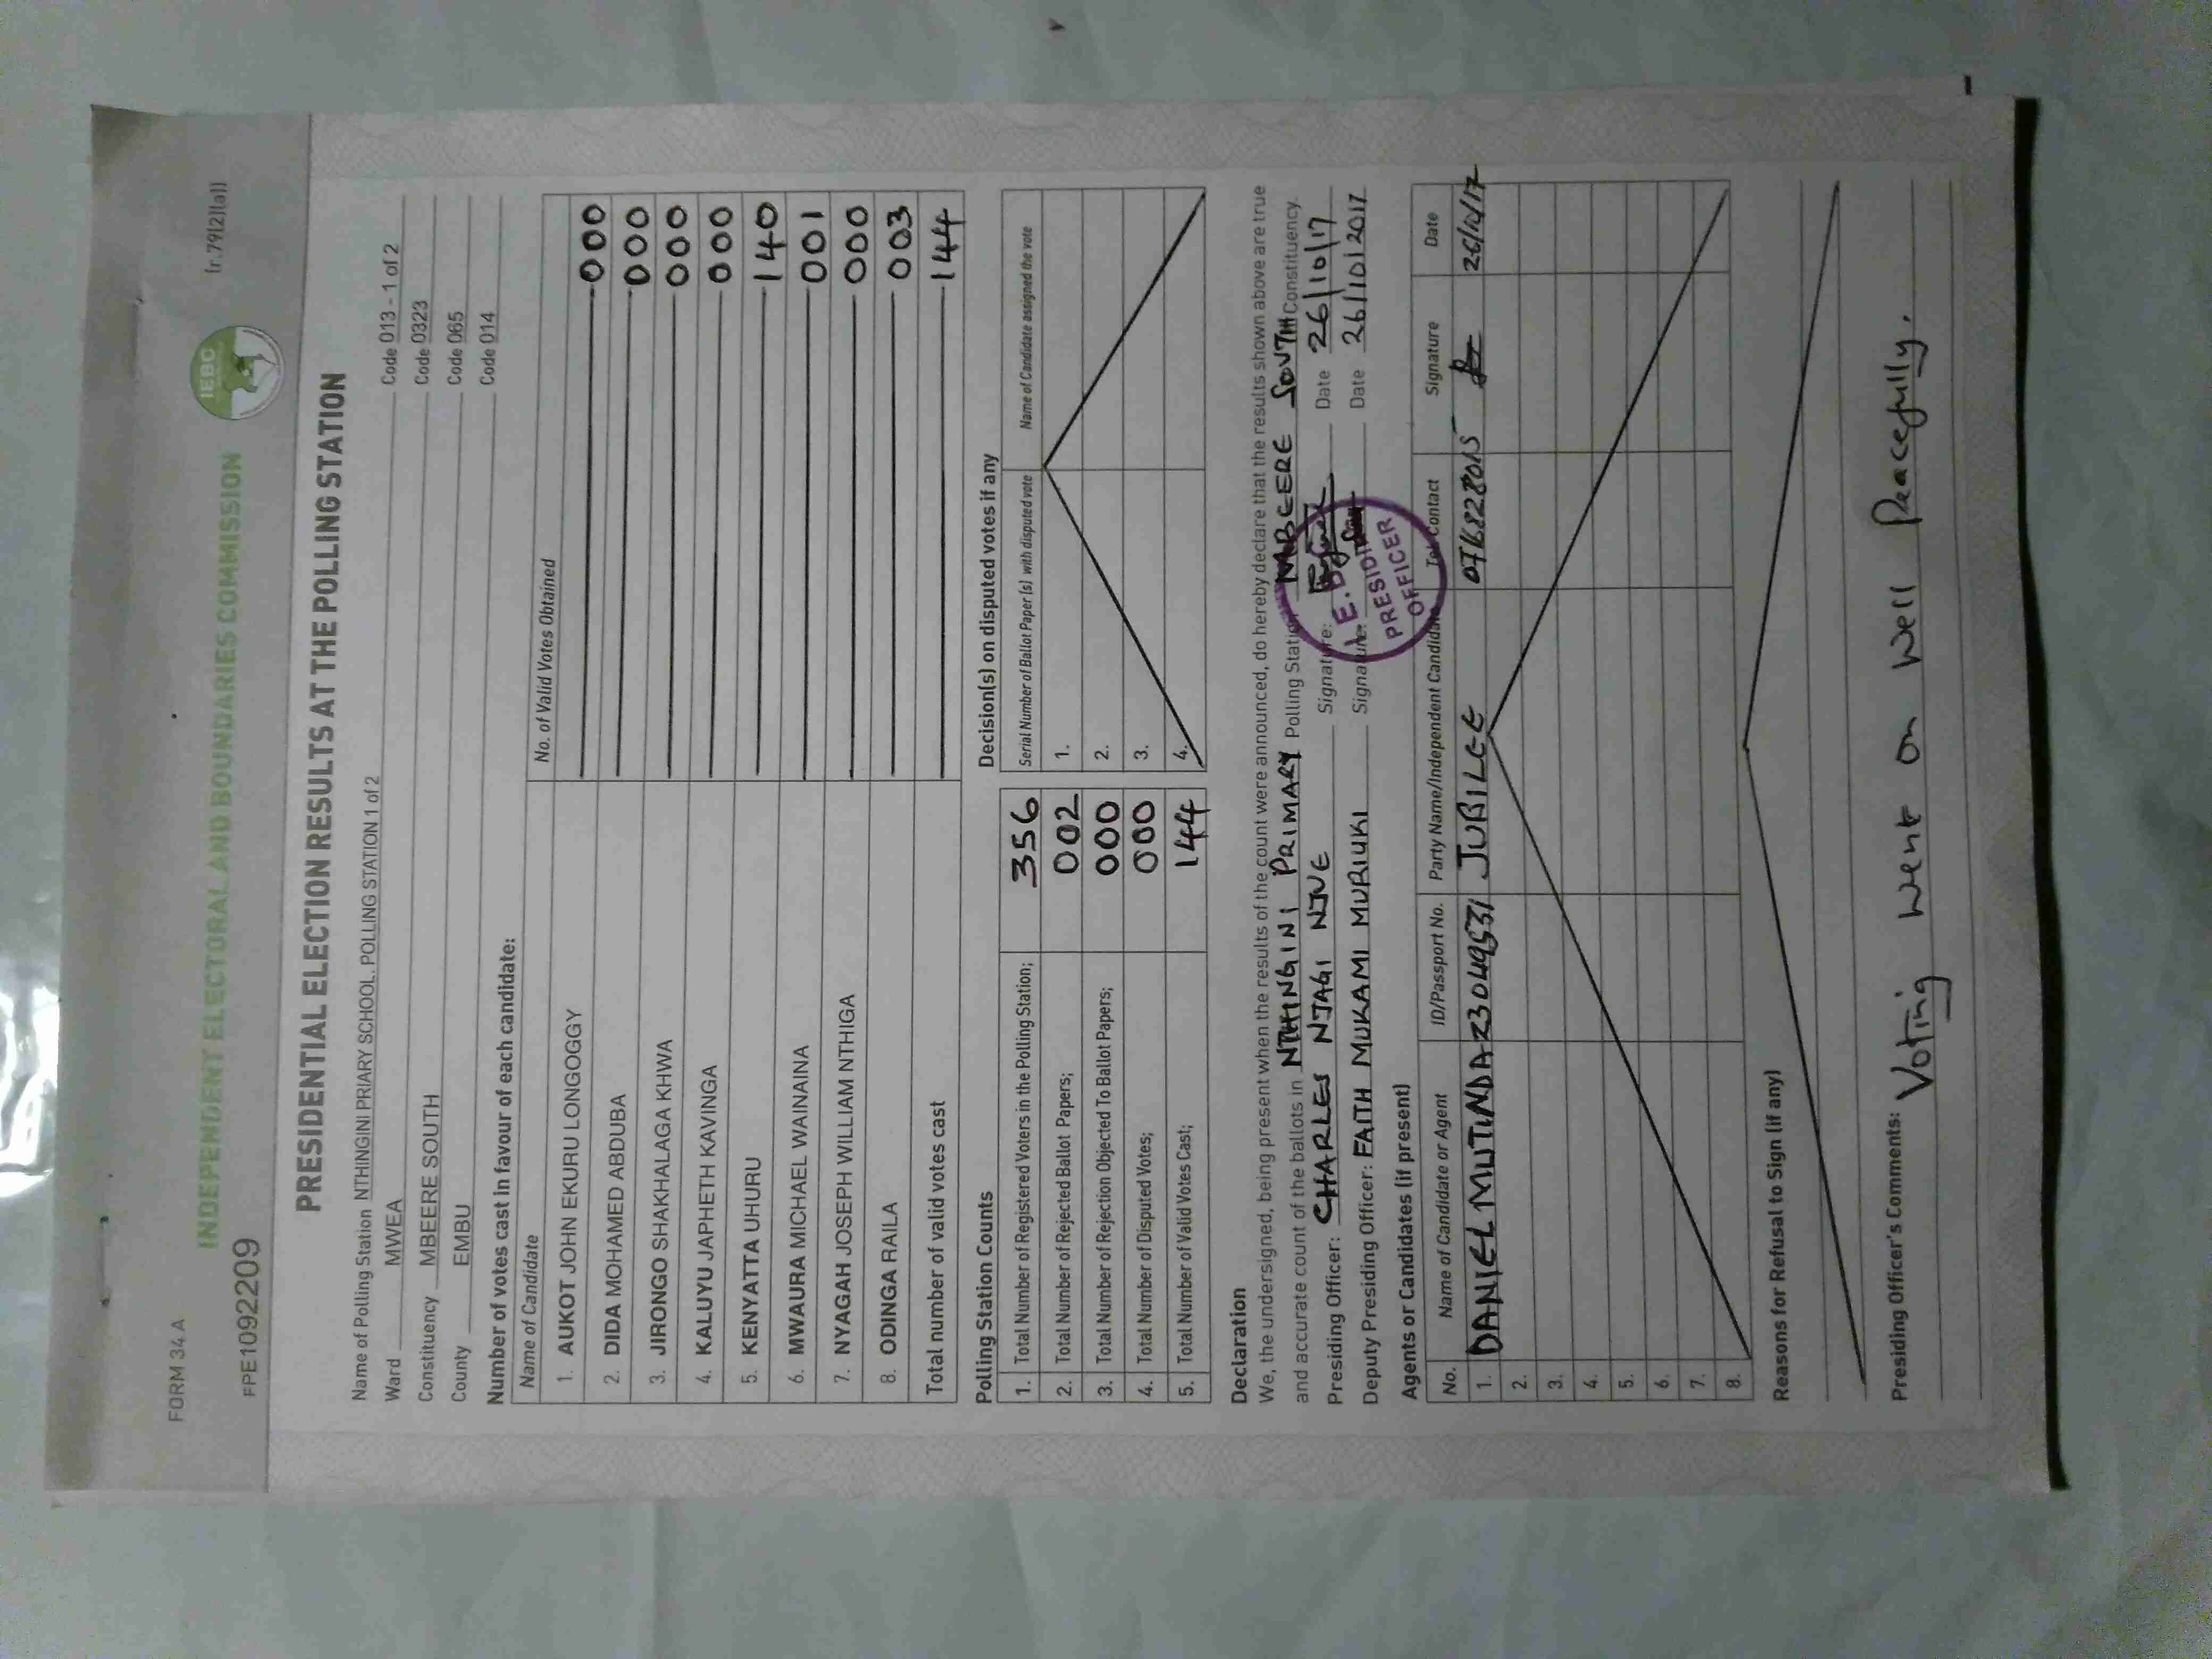 FORM 34 A
(r.79(2)(a))
IEBC
INDEPENDENT ELECTORAL AND BOUNDARIES COMMISSION
FPE1092209
PRESIDENTIAL ELECTION RESULTS AT THE POLLING STATION
Name of Polling Station NTHINGINI PRIARY SCHOOL. POLLING STATION 1 of 2 Code 013 - 1 of 2
Ward MWEA Code 0323
Constituency MBEERE SOUTH Code 065
County EMBU Code 014
Number of votes cast in favour of each candidate:
Name of Candidate No. of Valid Votes Obtained
1. AUKOT JOHN EKURU LONGOGGY 000
2. DIDA MOHAMED ABDUBA 000
3. JIRONGO SHAKHALAGA KHWA 000
4. KALUYU JAPHETH KAVINGA 000
5. KENYATTA UHURU 140
6. MWAURA MICHAEL WAINAINA 001
7. NYAGAH JOSEPH WILLIAM NTHIGA 000
8. ODINGA RAILA 003
Total number of valid votes cast 144
Polling Station Counts
1. Total Number of Registered Voters in the Polling Station; 356
2. Total Number of Rejected Ballot Papers; 002
3. Total Number of Rejection Objected To Ballot Papers; 000
4. Total Number of Disputed Votes; 000
5. Total Number of Valid Votes Cast; 144
Decision(s) on disputed votes if any
Serial Number of Ballot Paper (s) with disputed vote Name of Candidate assigned the vote
1.
2.
3.
4.
Declaration
We, the undersigned, being present when the results of the count were announced, do hereby declare that the results shown above are true
and accurate count of the ballots in NTHINGINI PRIMARY Polling Station MBEERE SOUTH Constituency.
Presiding Officer: CHARLES NJAGI NJUE Signature: Date 26/10/17
Deputy Presiding Officer: FAITH MUKAMI MURIUKI Signature: Date 26/10/2017
PRESIDING
OFFICER
Agents or Candidates (if present)
No. Name of Candidate or Agent ID/Passport No. Party Name/Independent Candidate Tel. Contact Signature Date
1. DANIEL MUTINDA 23049531 JUBILEE 0768228015 26/10/17
2.
3.
4.
5.
6.
7.
8.
Reasons for Refusal to Sign (if any)
Presiding Officer's Comments: Voting went on well Peacefully.